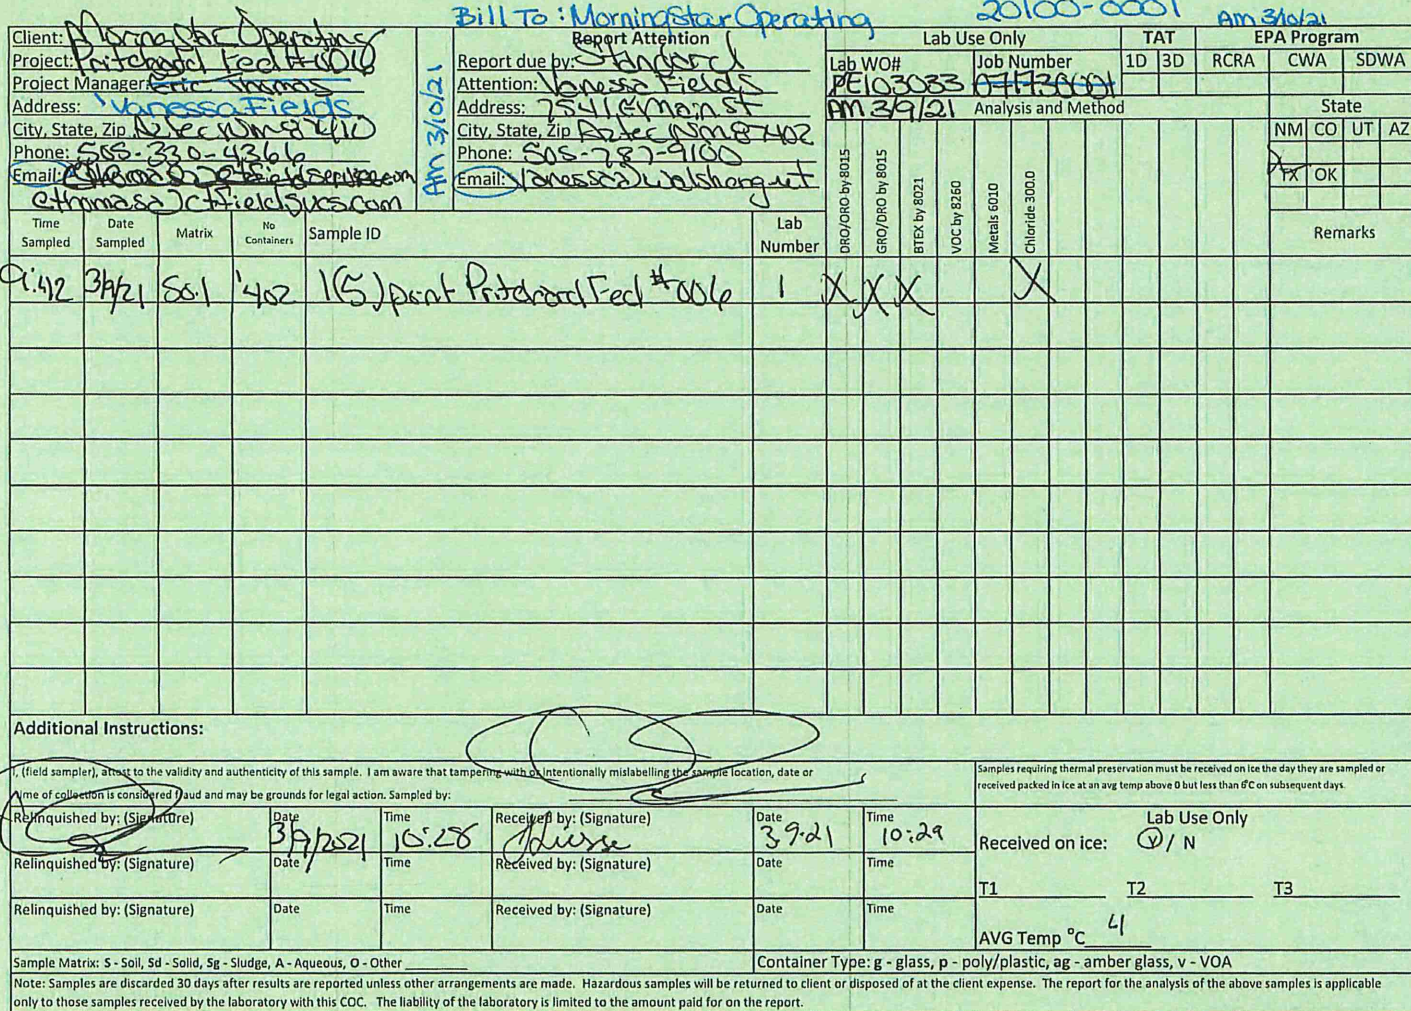 Bill To : MorningStar Operating
20100-0001
AM 3/10/21
Client: MorningStar Operating
Project: Pritchard Fed #006
Project Manager: Eric Thomas
Vanessa Fields
Address:
City, State, Zip Aztec NM 87410
Phone: 505-330-4366
Email:
ethomas@jctfieldsvcs.com
AM 3/10/21
Report Attention
Report due by: Standard
Attention: Vanessa Fields
Address: 7541 E Main St
City, State, Zip Aztec NM 87402
Phone: 505-787-9100
Email: Vanessa@walsheng.net
Lab Use Only
Lab WO#
PE103033
Job Number
07173-0001
AM 3/9/21
Analysis and Method
DRO/ORO by 8015
GRO/DRO by 8015
BTEX by 8021
VOC by 8260
Metals 6010
Chloride 300.0
TAT
1D 3D
EPA Program
RCRA CWA SDWA
State
NM CO UT AZ
X
TX OK
Time Sampled
Date Sampled
Matrix
No Containers
Sample ID
Lab Number
Remarks
9:42 3/9/21 Soil 1402 1(5) point Pritchard Fed #006 1 X X X X
Additional Instructions:
I, (field sampler), attest to the validity and authenticity of this sample. I am aware that tampering with or intentionally mislabelling the sample location, date or
time of collection is considered fraud and may be grounds for legal action. Sampled by:
Samples requiring thermal preservation must be received on ice the day they are sampled or
received packed in ice at an avg temp above 0 but less than 6°C on subsequent days.
Relinquished by: (Signature) Date 3/9/2021 Time 10:28 Received by: (Signature) Date 3.9.21 Time 10:29
Relinquished by: (Signature) Date Time Received by: (Signature) Date Time
Relinquished by: (Signature) Date Time Received by: (Signature) Date Time
Lab Use Only
Received on ice: Y / N
T1 T2 T3
AVG Temp °C 4
Sample Matrix: S - Soil, Sd - Solid, Sg - Sludge, A - Aqueous, O - Other
Container Type: g - glass, p - poly/plastic, ag - amber glass, v - VOA
Note: Samples are discarded 30 days after results are reported unless other arrangements are made. Hazardous samples will be returned to client or disposed of at the client expense. The report for the analysis of the above samples is applicable
only to those samples received by the laboratory with this COC. The liability of the laboratory is limited to the amount paid for on the report.